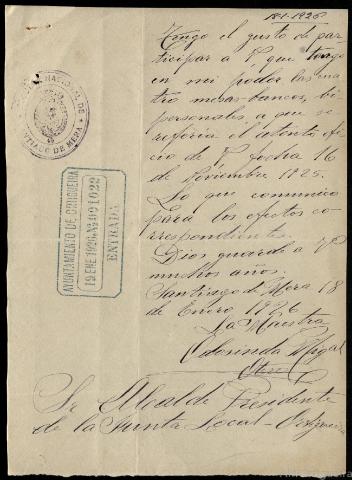 18-1-1926
Tengo el gusto de par-
ticipar a V. que tengo
en mi poder las cua-
tro mesas-bancos, bi-
personales, a que se
referia el atento ofi-
cio de V. fecha 16
de Noviembre 1925.
Lo que comunico
para los efectos co-
rrespondientes.
Dios guarde a V.
muchos años.
Santiago de Mera 18
de Enero 1926
La Maestra
NACIONAL DE
SANTIAGO DE MERA
AYUNTAMIENTO DE ORTIGUEIRA
19 ENE. 1926
ENTRADA
Sr. Alcalde Presidente
de la Junta Local - Ortigueira